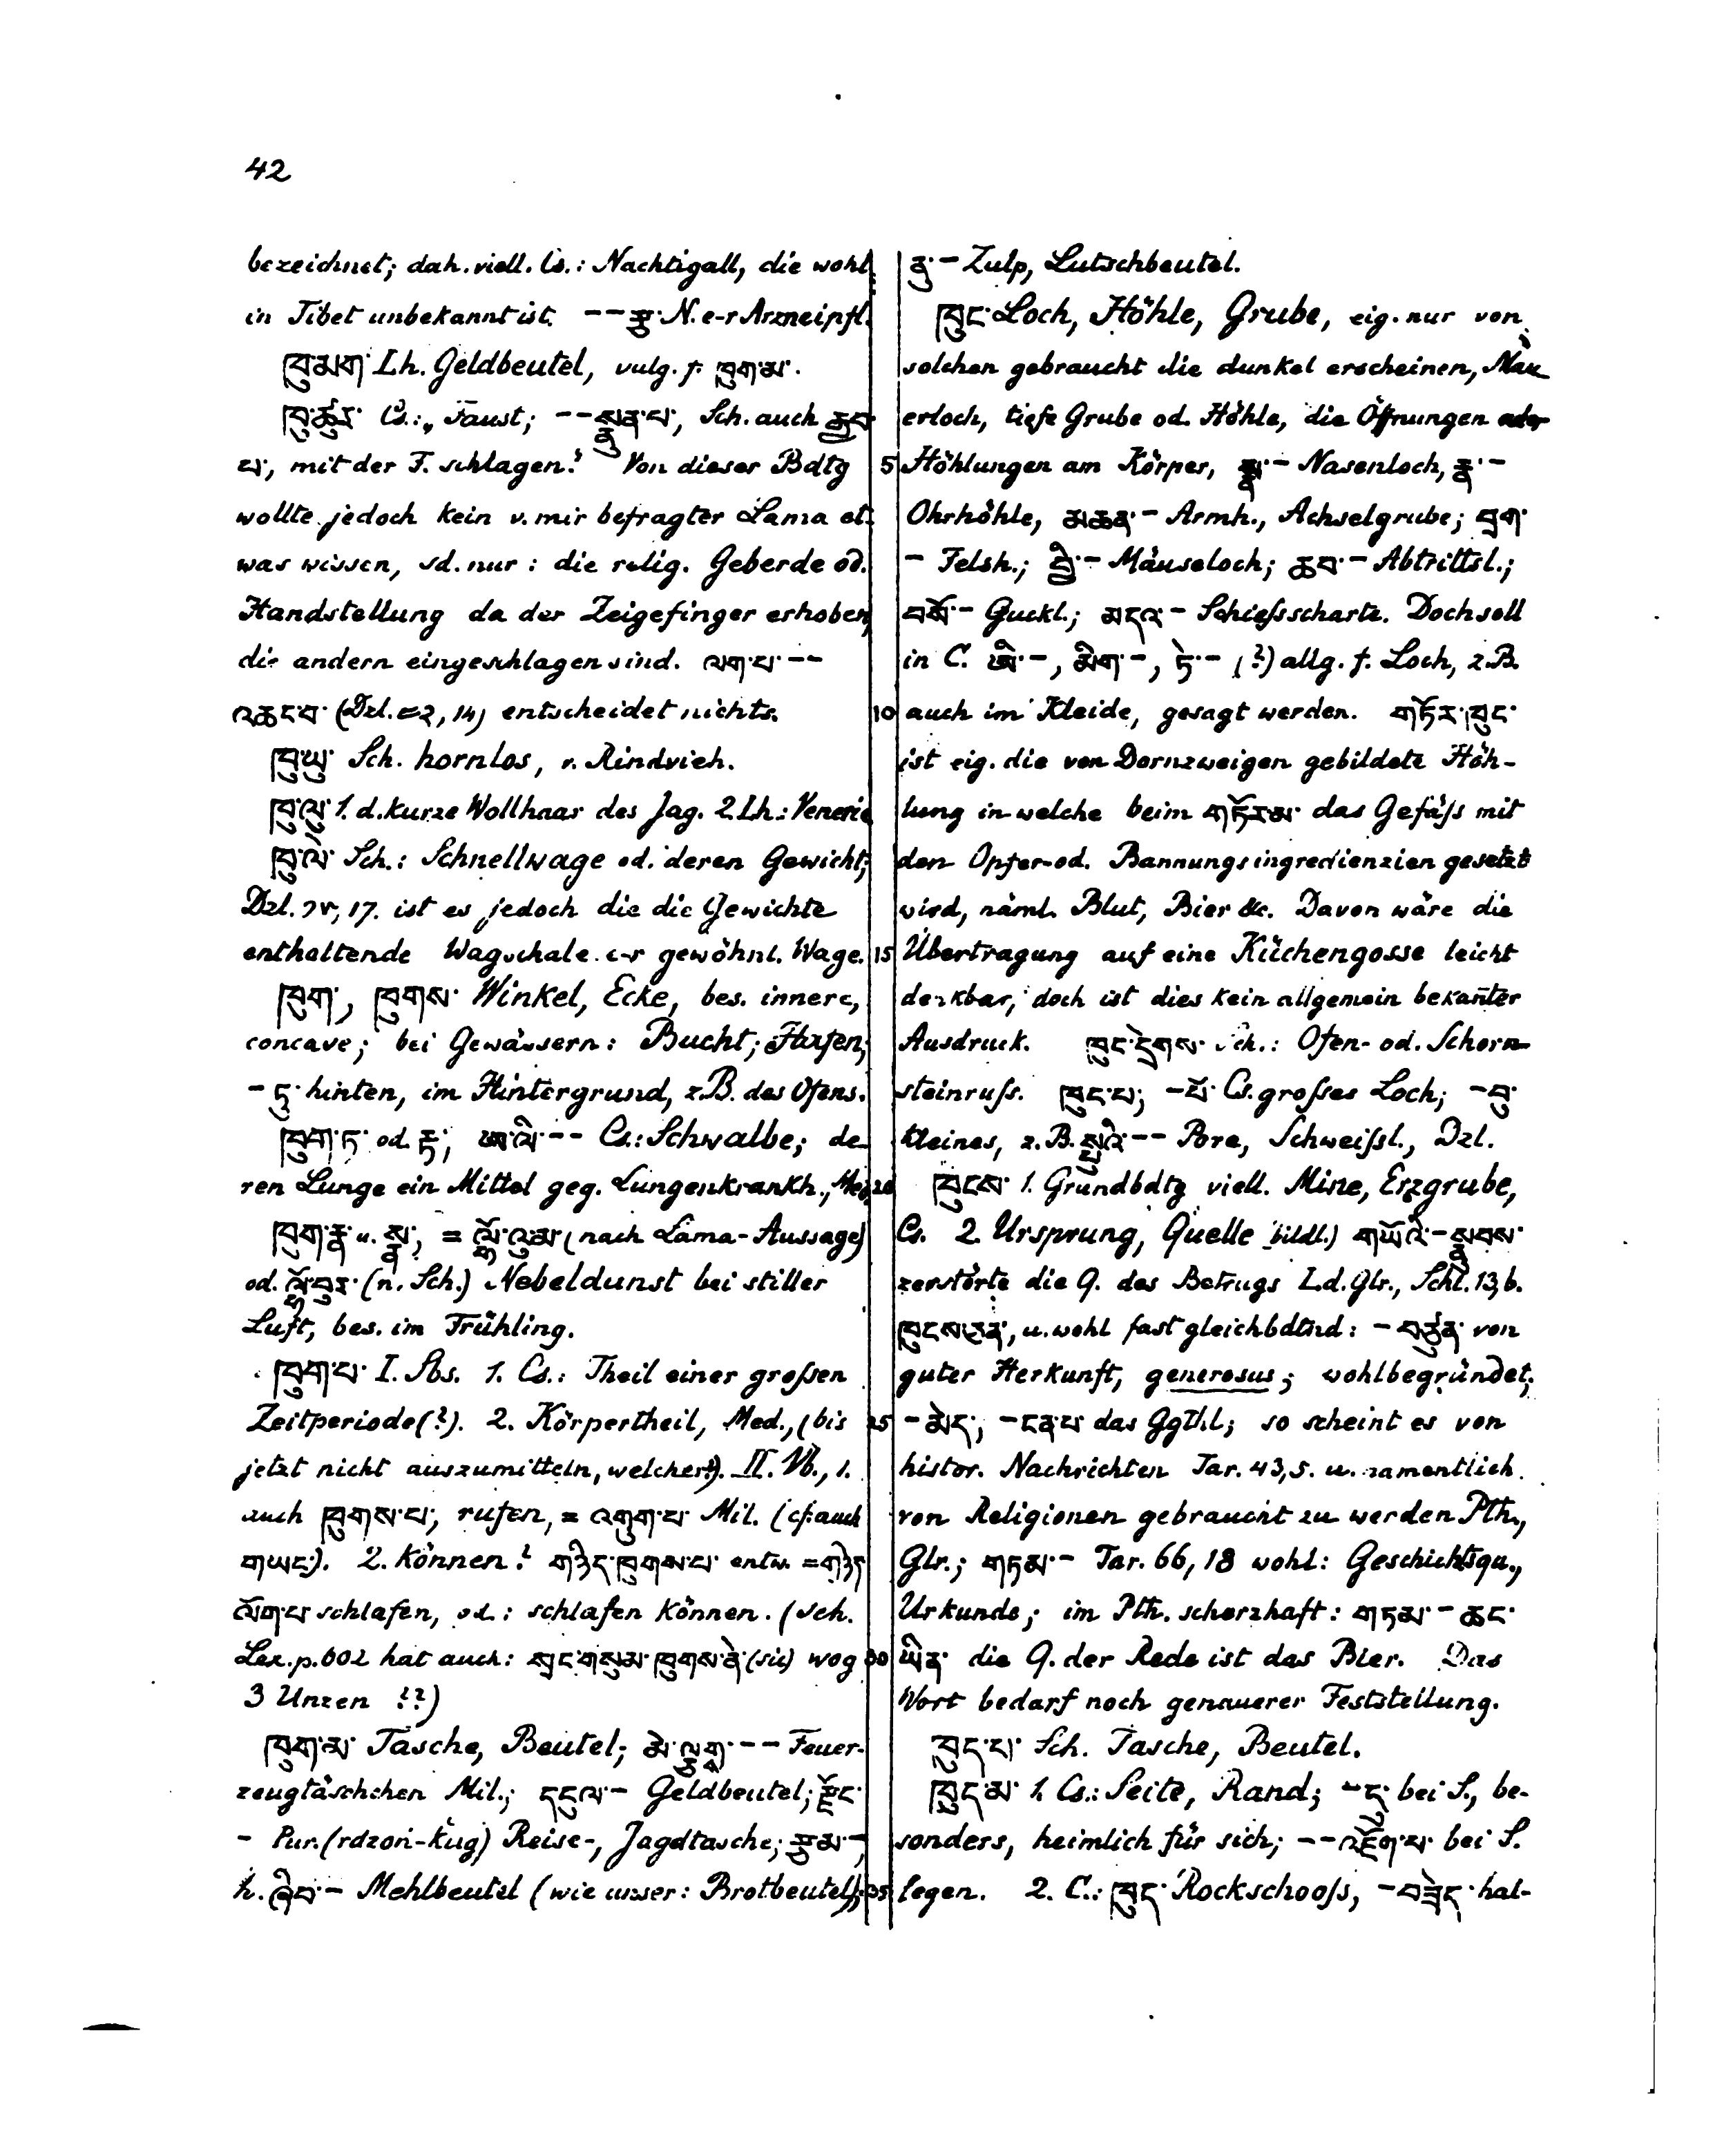 42
bezeichnet; dah. viell. Cs.: Nachtigall, die wohl
in Tibet unbekannt ist. -- རྩྭ་ N. e-r Arzneipfl.
ཁུ་མག་ Lh. Geldbeutel, vulg. f. ཁུག་མ་.
ཁུ་ཚུར་ Cs.: „Faust; -- སྣུན་པ་, Sch. auch རྒྱབ་
པ་, mit der F. schlagen." Von dieser Bdtg
wollte jedoch kein v. mir befragter Lama et-
was wissen, sd. nur: die relig. Geberde od.
Handstellung da der Zeigefinger erhoben,
die andern eingeschlagen sind. ལག་པ་ --
འཆང་བ་ (Dzl. ༢༢, 14) entscheidet nichts.
ཁུ་ཡུ་ Sch. hornlos, v. Rindvieh.
ཁུ་ལུ་ 1. d. kurze Wollhaar des Jag. 2. Lh.: Venerie
ཁུ་ལེ་ Sch.: Schnellwage od. deren Gewicht;
Dzl. ༡༧, 17. ist es jedoch die die Gewichte
enthaltende Wagschale e-r gewöhnl. Wage.
ཁུག་, ཁུགས་ Winkel, Ecke, bes. innere,
concave; bei Gewässern: Bucht; Hafen;
- ཏུ་ hinten, im Hintergrund, z.B. des Ofens.
ཁུག་ཏ་ od. རྟ་; ཨ་ལི་ -- Cs.: Schwalbe; de-
ren Lunge ein Mittel geg. Lungenkrankh., Med
ཁུག་རྣ་ u. སྣ་; = ལྷོ་འུམ་ (nach Lama-Aussage)
od. ལྷོ་བུར་ (n. Sch.) Nebeldunst bei stiller
Luft, bes. im Frühling.
ཁུག་པ་ I. Sbs. 1. Cs.: Theil einer großen
Zeitperiode (?). 2. Körpertheil, Med., (bis 25
jetzt nicht auszumitteln, welcher?). II. Vb., 1.
auch ཁུགས་པ་; rufen, = འགུག་པ་ Mil. (cf. auch
གཡང་). 2. können? གཉིད་ཁུགས་པ་ entw. = གཉིད་
ལོག་པ་ schlafen, od.: schlafen können. (Sch.
Lex. p. 602 hat auch: སྲང་གསུམ་ཁུགས་ནེ་ (sic) wog 30
3 Unzen ??)
ཁུག་མ་ Tasche, Beutel; མེ་ལྕག་ -- Feuer-
zeugtäschchen Mil.; དངུལ་ - Geldbeutel; རྫོང་
- Pur. (rdzoṅ-k̔ug) Reise-, Jagdtasche; རྩམ་ -,
h. ཞིབ་ - Mehlbeutel (wie unser: Brotbeutel); 35
ནུ་ - Zulp, Lutschbeutel.
ཁུང་ Loch, Höhle, Grube, eig. nur von
solchen gebraucht die dunkel erscheinen, Mau-
erloch, tiefe Grube od. Höhle, die Öffnungen oder
5 Höhlungen am Körper, སྣ་ - Nasenloch, རྣ་ -
Ohrhöhle, མཆན་ - Armh., Achselgrube; བྲག་
- Felsh.; བྱི་ - Mäuseloch; ཆབ་ - Abtrittsl.;
བསོ་ - Guckl.; མདའ་ - Schießscharte. Doch soll
in C. ཨི་ -, མིག་ -, ཏེ་ - (?) allg. f. Loch, z.B.
10 auch im Kleide, gesagt werden. གཏོར་ཁུང་
ist eig. die von Dornzweigen gebildete Höh-
lung in welche beim གཏོར་མ་ das Gefäß mit
den Opfer- od. Bannungsingredienzien gesetzt
wird, näml. Blut, Bier &c. Davon wäre die
15 Übertragung auf eine Küchengosse leicht
denkbar, doch ist dies kein allgemein bekan̄ter
Ausdruck. ཁུང་དྲེགས་ Sch.: Ofen- od. Schorn-
steinruß. ཁུང་པ་; - པོ་ Cs. großes Loch; - བུ་
kleines, z.B. སྤུའི་ -- Pore, Schweißl., Dzl.
20 ཁུངས་ 1. Grundbdtg viell. Mine, Erzgrube,
Cs. 2. Ursprung, Quelle (bildl.) གཡོའི་ - སྣུབས་
zerstörte die Q. des Betrugs L. d. Glr., Schl. 13, b.
ཁུངས་ཅན་, u. wohl fast gleichbdtnd: - བཙུན་ von
guter Herkunft, generosus; wohlbegründet;
- མེད་, - ངན་པ་ das Ggthl; so scheint es von
histor. Nachrichten Tar. 43, 5. u. namentlich
von Religionen gebraucht zu werden Pth.,
Glr.; གཏམ་ - Tar. 66, 18 wohl: Geschichtsqu.,
Urkunde; im Pth. scherzhaft: གཏམ་ - ཆང་
ཡིན་ die Q. der Rede ist das Bier. Das
Wort bedarf noch genauerer Feststellung.
ཁུད་པ་ Sch. Tasche, Beutel.
ཁུད་མ་ 1. Cs.: Seite, Rand; - དུ་ bei S., be-
sonders, heimlich für sich; -- འཇོག་པ་ bei S.
legen. 2. C.: ཁུད་ Rockschooß, - བཟེད་ hal-